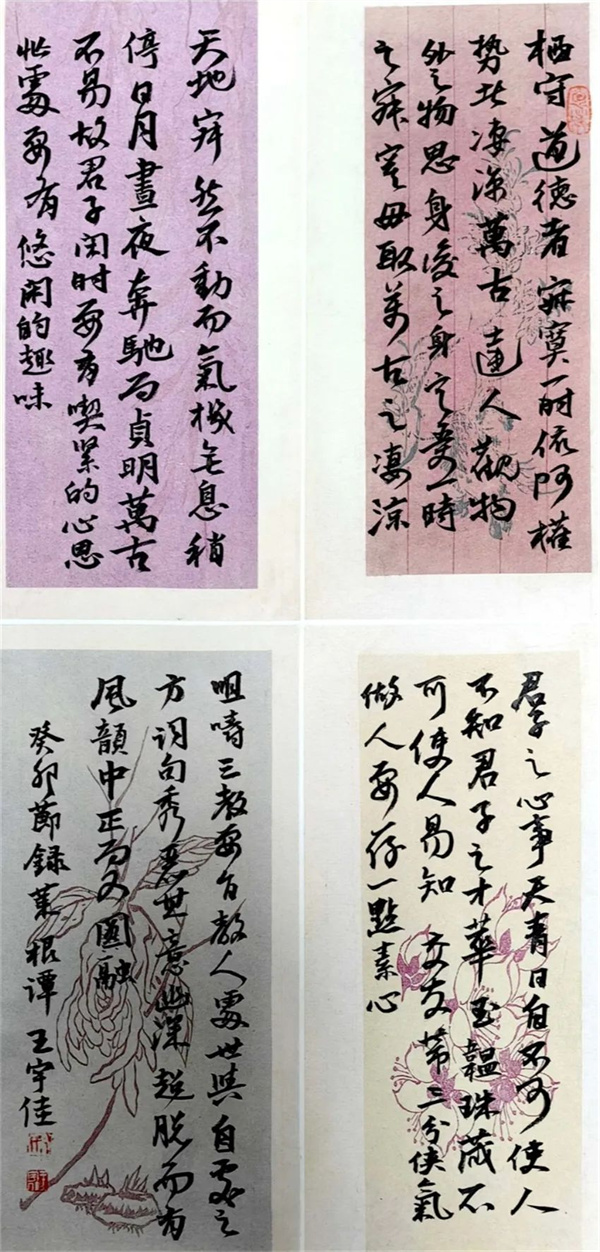 栖守道德者寂寞一时依阿權
势者凄涼萬古達人觀物
外之物思身後之身寧受一時
之寂寞毋取萬古之凄涼
天地寂然不動而氣機无息稍
停日月晝夜奔馳而貞明萬古
不易故君子闲时要有喫紧的心思
忙處要有悠闲的趣味
君子之心事天青日白不可使人
不知君子之才華玉韞珠藏不
可使人易知 交友带三分侠氣
做人要存一點素心
咀嚼三教要旨教人處世與自處之
方词句秀意幽深超脱而有
風韻中正而又圓融
癸卯節録菜根谭 王宇佳